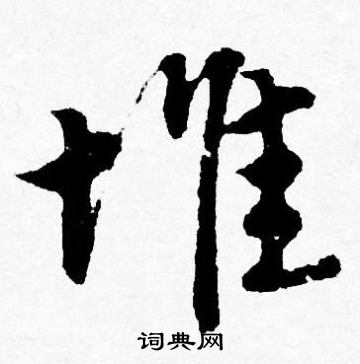 堆
词典网